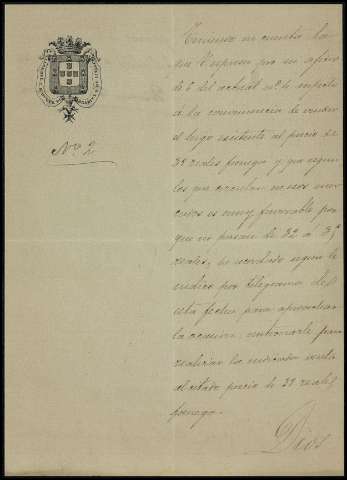 Nº 2
Teniendo en cuenta lo
que V. expresa por su oficio
de 6 del actual nº 4 respecto
á la conveniencia de vender
el trigo existente al precio de
39 reales fanega y que segun
los que circulan en esos mer-
cados es muy favorable por
que no pasan de 32 á 35
reales, he acordado segun le
indico por telegrama de
esta fecha para aprovechar
la ocasion, autorizarle para
realizar la indicada venta
al citado precio de 39 reales
fanega.
Dios